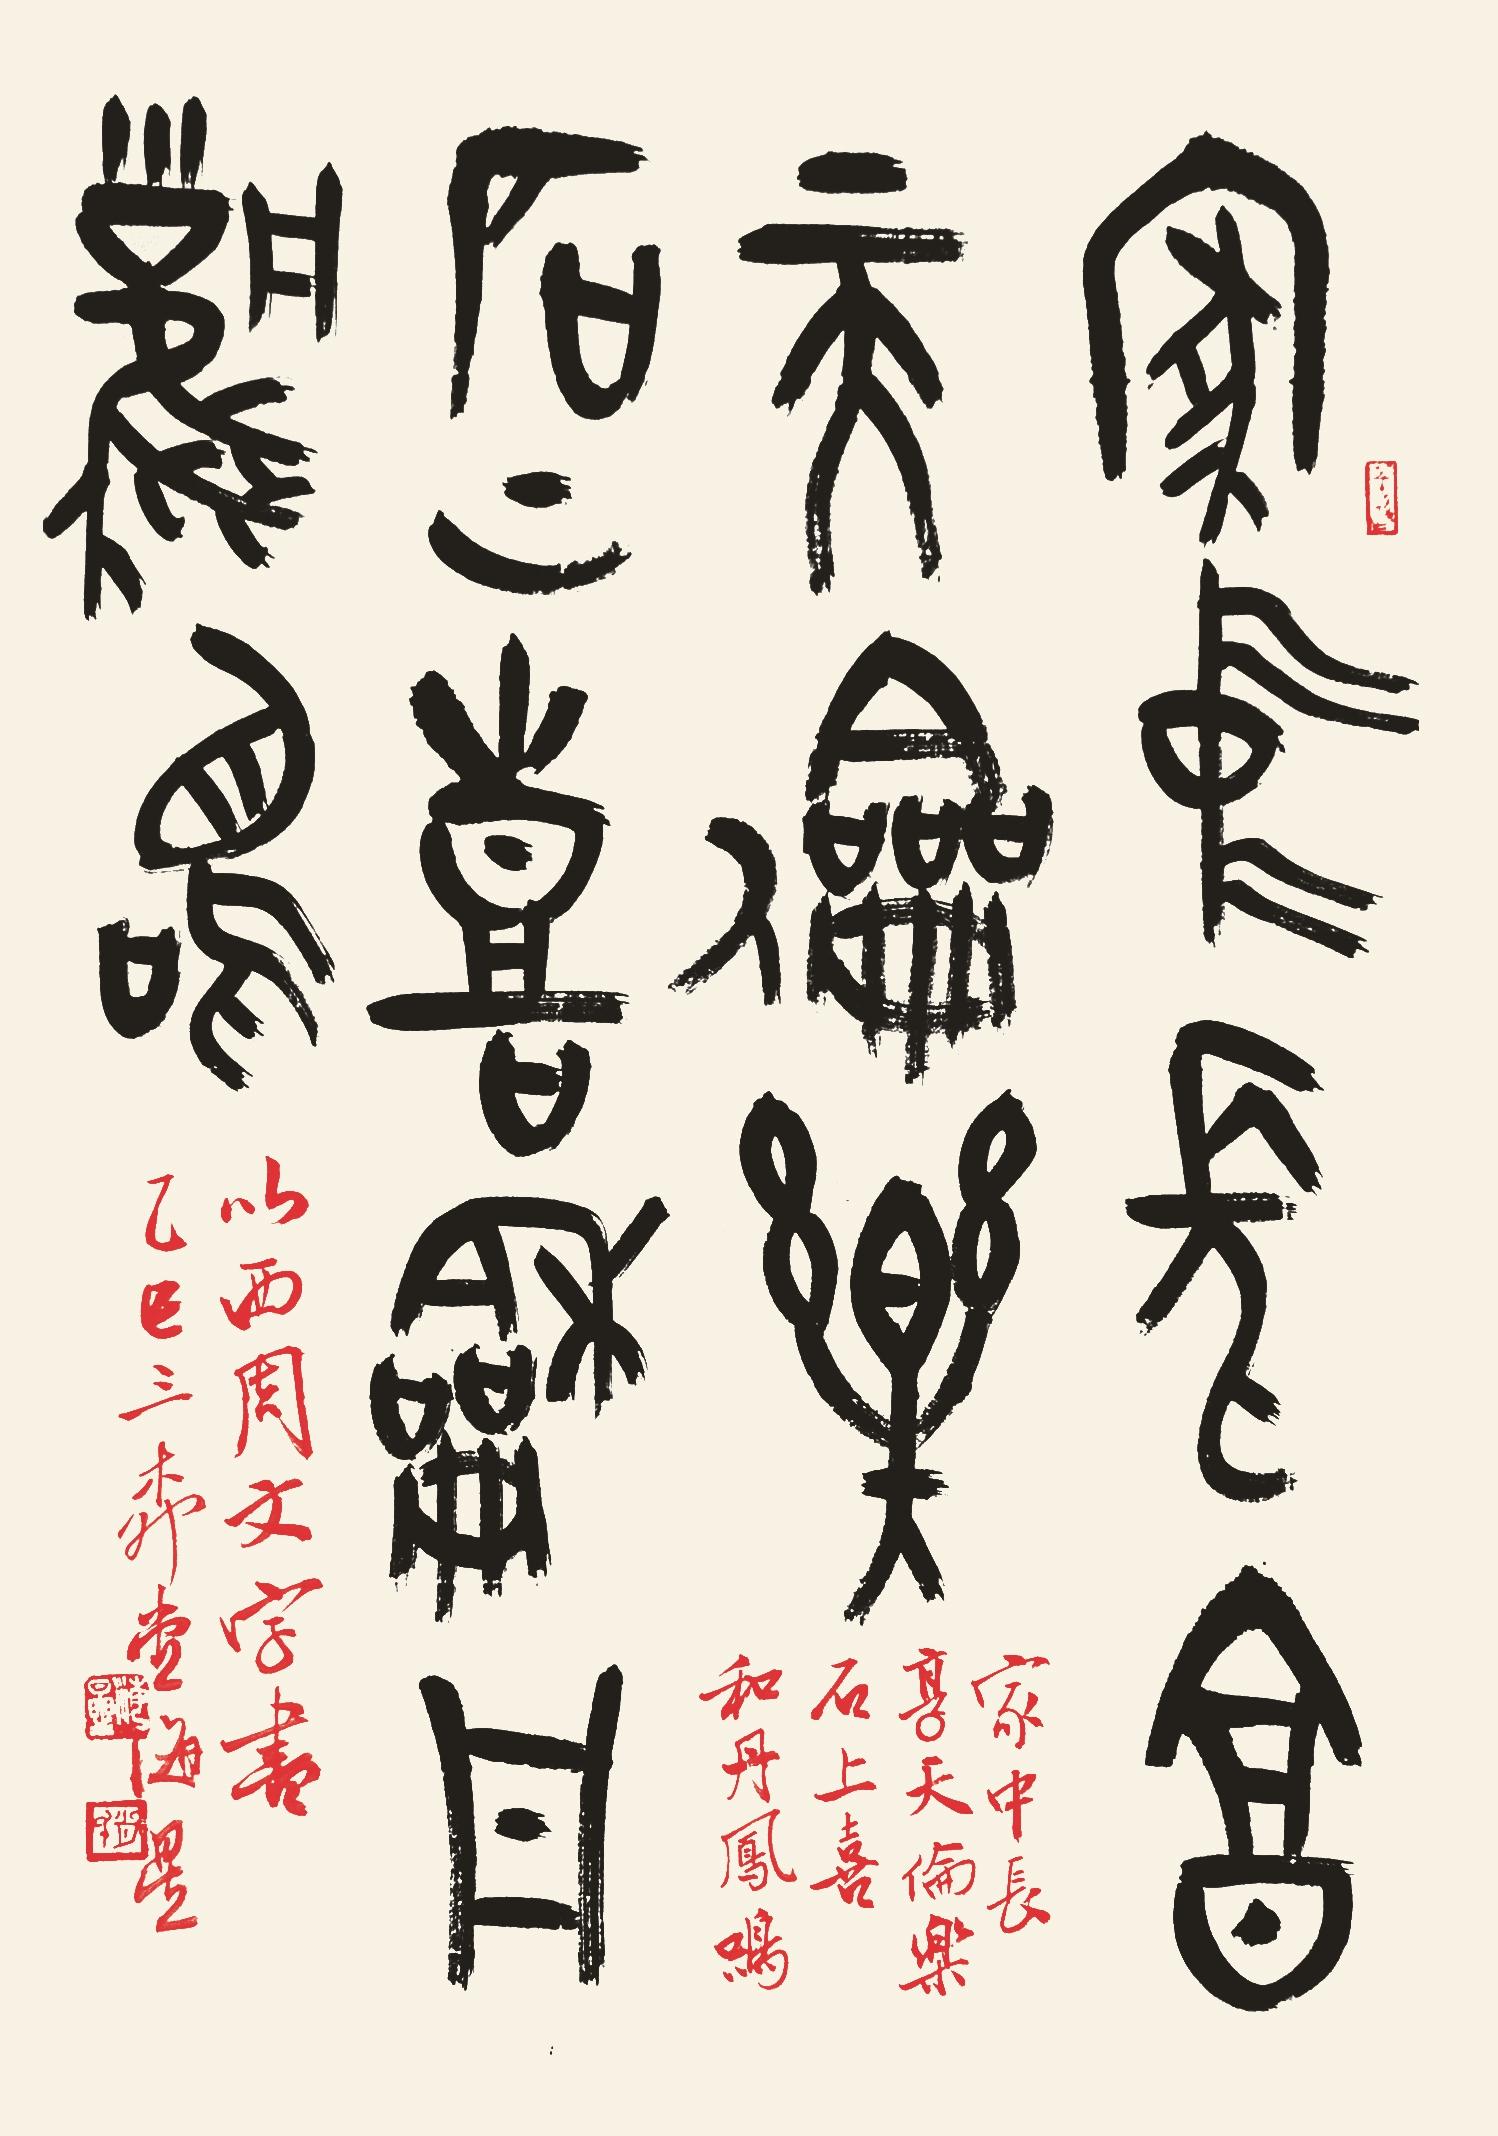 家中長享
天倫樂
石上喜和丹
鳳鳴
家中長
享天倫樂
石上喜
和丹鳳鳴
以西周文字書
乙巳三
堂海星